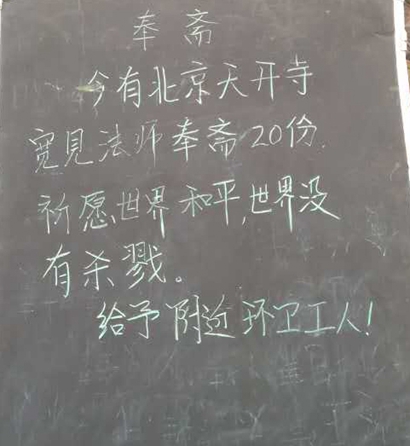 奉斋
今有北京天开寺
宽见法师奉斋20份.
祈愿世界和平,世界没
有杀戮。
给予附近环卫工人!